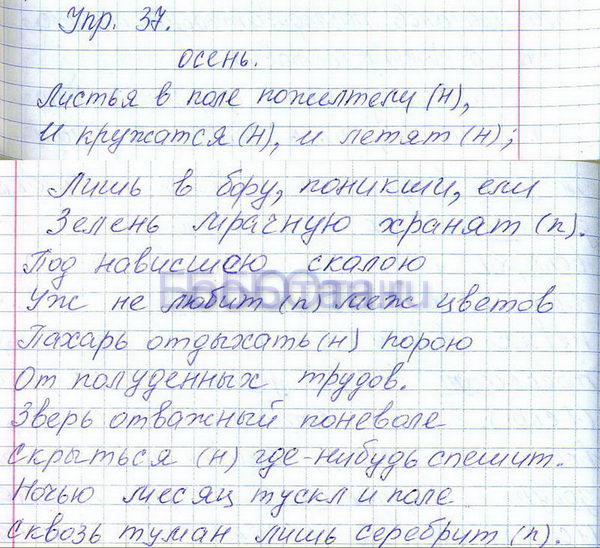 Упр. 37.
осень.
Листья в поле пожелтели (н),
И кружатся (н), и летят (н);
Лишь в бору, поникши, ели
Зелень мрачную хранят (п).
Под нависшею скалою
Уж не любит (п) меж цветов
Пахарь отдыхать (н) порою
От полуденных трудов.
Зверь отважный поневоле
Скрыться (н) где-нибудь спешит.
Ночью месяц тускл и поле
Сквозь туман лишь серебрит (п).